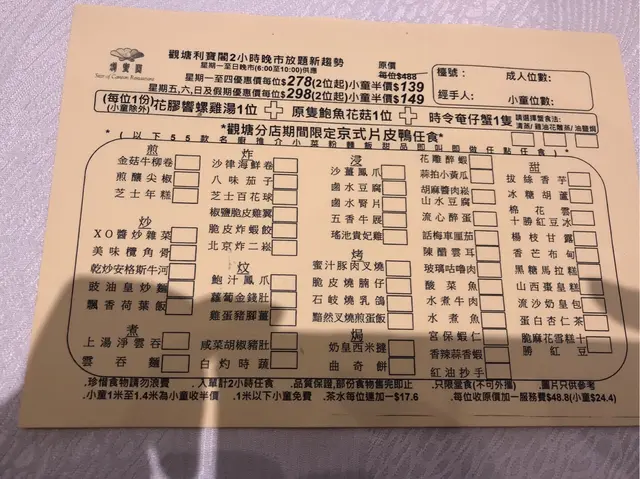 觀塘利寶閣2小時晚市放題新趨勢
星期一至日晚市(6:00至10:00)供應
原價
每位$488
星期一至四優惠價每位$278(2位起)小童半價$139
星期五,六,日及假期優惠價每位$298(2位起)小童半價$149
檯號：
成人位數：
經手人：
小童位數：
(每位1份)花膠響螺雞湯1位
(小童除外)
原隻鮑魚花菇1位
時令奄仔蟹1隻
請選擇蟹食法:
清蒸/雞油花雕蒸/油鹽焗
*觀塘分店期間限定京式片皮鴨任食*
(以下55款名廚推介小菜粉麵飯甜品即叫即做任點任食)
煎
金菇牛柳卷
煎釀尖椒
芝士年糕
炒
XO醬炒雜菜
美味欖角骨
乾炒安格斯牛河
豉油皇炒麵
飄香荷葉飯
煮
上湯淨雲吞
雲吞麵
炸
沙律海鮮卷
八味茄子
芝士百花球
椒鹽脆皮雞翼
脆皮炸蝦餃
北京炸二崧
炆
鮑汁鳳爪
蘿蔔金錢肚
雞蛋豬腳薑
咸菜胡椒豬肚
白灼時蔬
浸
沙薑鳳爪
鹵水豆腐
鹵水腎片
五香牛𦟌
瑤池貴妃雞
烤
蜜汁豚肉叉燒
脆皮燒腩仔
石岐燒乳鴿
黯然叉燒煎蛋飯
焗
奶皇西米撻
曲奇餅
花雕醉蝦
蒜拍小黃瓜
胡麻醬肉崧
山水豆腐
流心醉蛋
話梅車厘茄
陳醋雲耳
玻璃咕嚕肉
酸菜魚
水煮牛肉
水煮魚
宮保蝦仁
香辣蒜香蝦
紅油抄手
甜
拔絲香芋
冰糖胡蘆
棉花雲
十勝紅豆冰
楊枝甘露
香芒布甸
黑糖馬拉糕
山西棗皇糕
流沙奶皇包
蛋白杏仁茶
脆麻花雪糕十
勝紅豆
.珍惜食物請勿浪費
.入單計2小時任食
.品質保證,部份食物售完即止
.只限堂食(不可外攜)
.圖片只供參考
.小童1米至1.4米為小童收半價
.1米以下小童免費
.茶水每位連加一$17.6
.每位收原價加一服務費$48.8(小童$24.4)